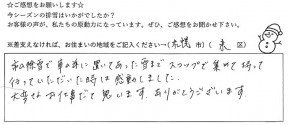 ☆ご感想をお願いします☆
今シーズンの排雪はいかがでしたか？
お客様の声が、私たちの原動力になっています。ぜひ、ご感想をお聞かせ下さい。
※差支えなければ、お住まいの地域をご記入ください→(札幌 市)( 東 区)
私の除雪で車の下に置いてあった雪までスコップで集めて持って
行っていただいた時は感動しました。
大変なお仕事だと思います。ありがとうございます。